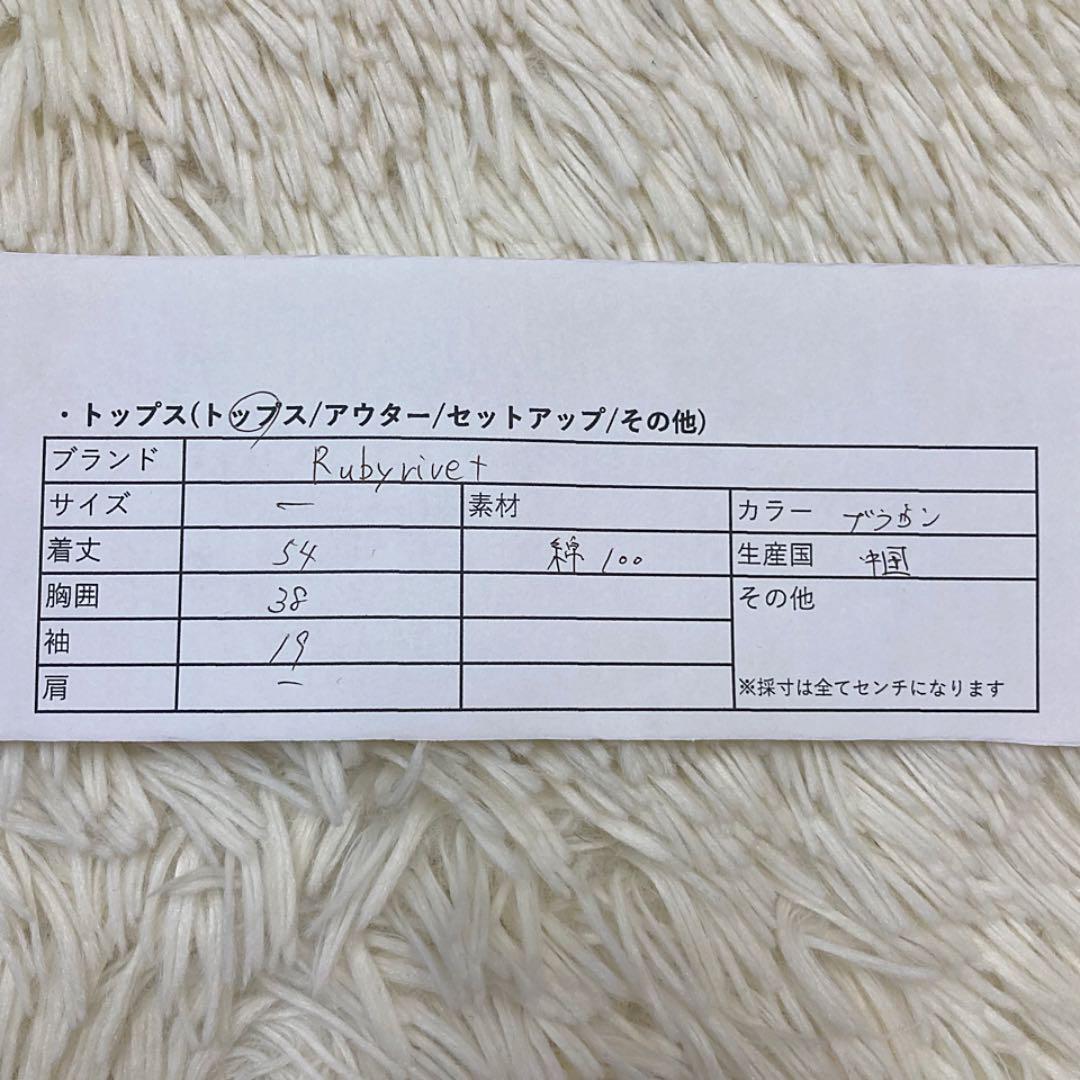 ・トップス(トップス/アウター/セットアップ/その他)
ブランド Rubyrivet
サイズ ー 素材 カラー ブラウン
着丈 54 綿 100 生産国 中国
胸囲 38 その他
袖 19
肩 ー ※採寸は全てセンチになります